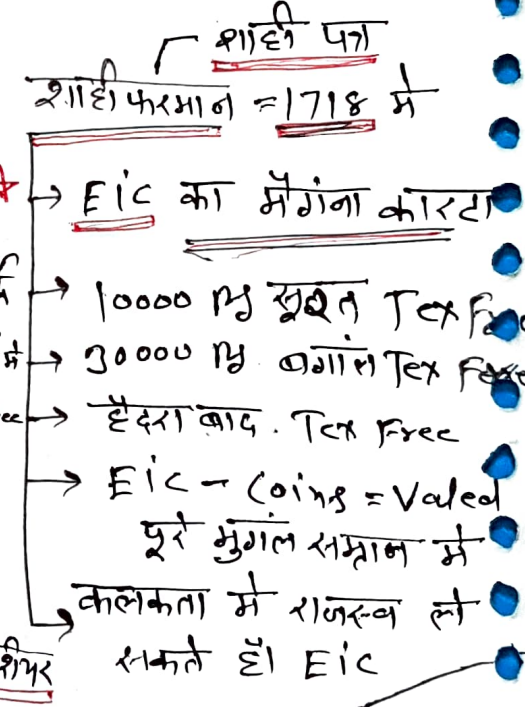 शाही पत्र
शाही फरमान = 1718 मे
→ EiC का मैगंना कारटा
→ 10000 Rs सूरत Tex Free
→ 30000 Rs बगांल Tex Free
→ हैदराबाद. Tex Free
→ EiC - Coins = Valed
पूरे मुगंल सम्राज मे
कलकता मे राजस्व ले
सकते हैं। EiC